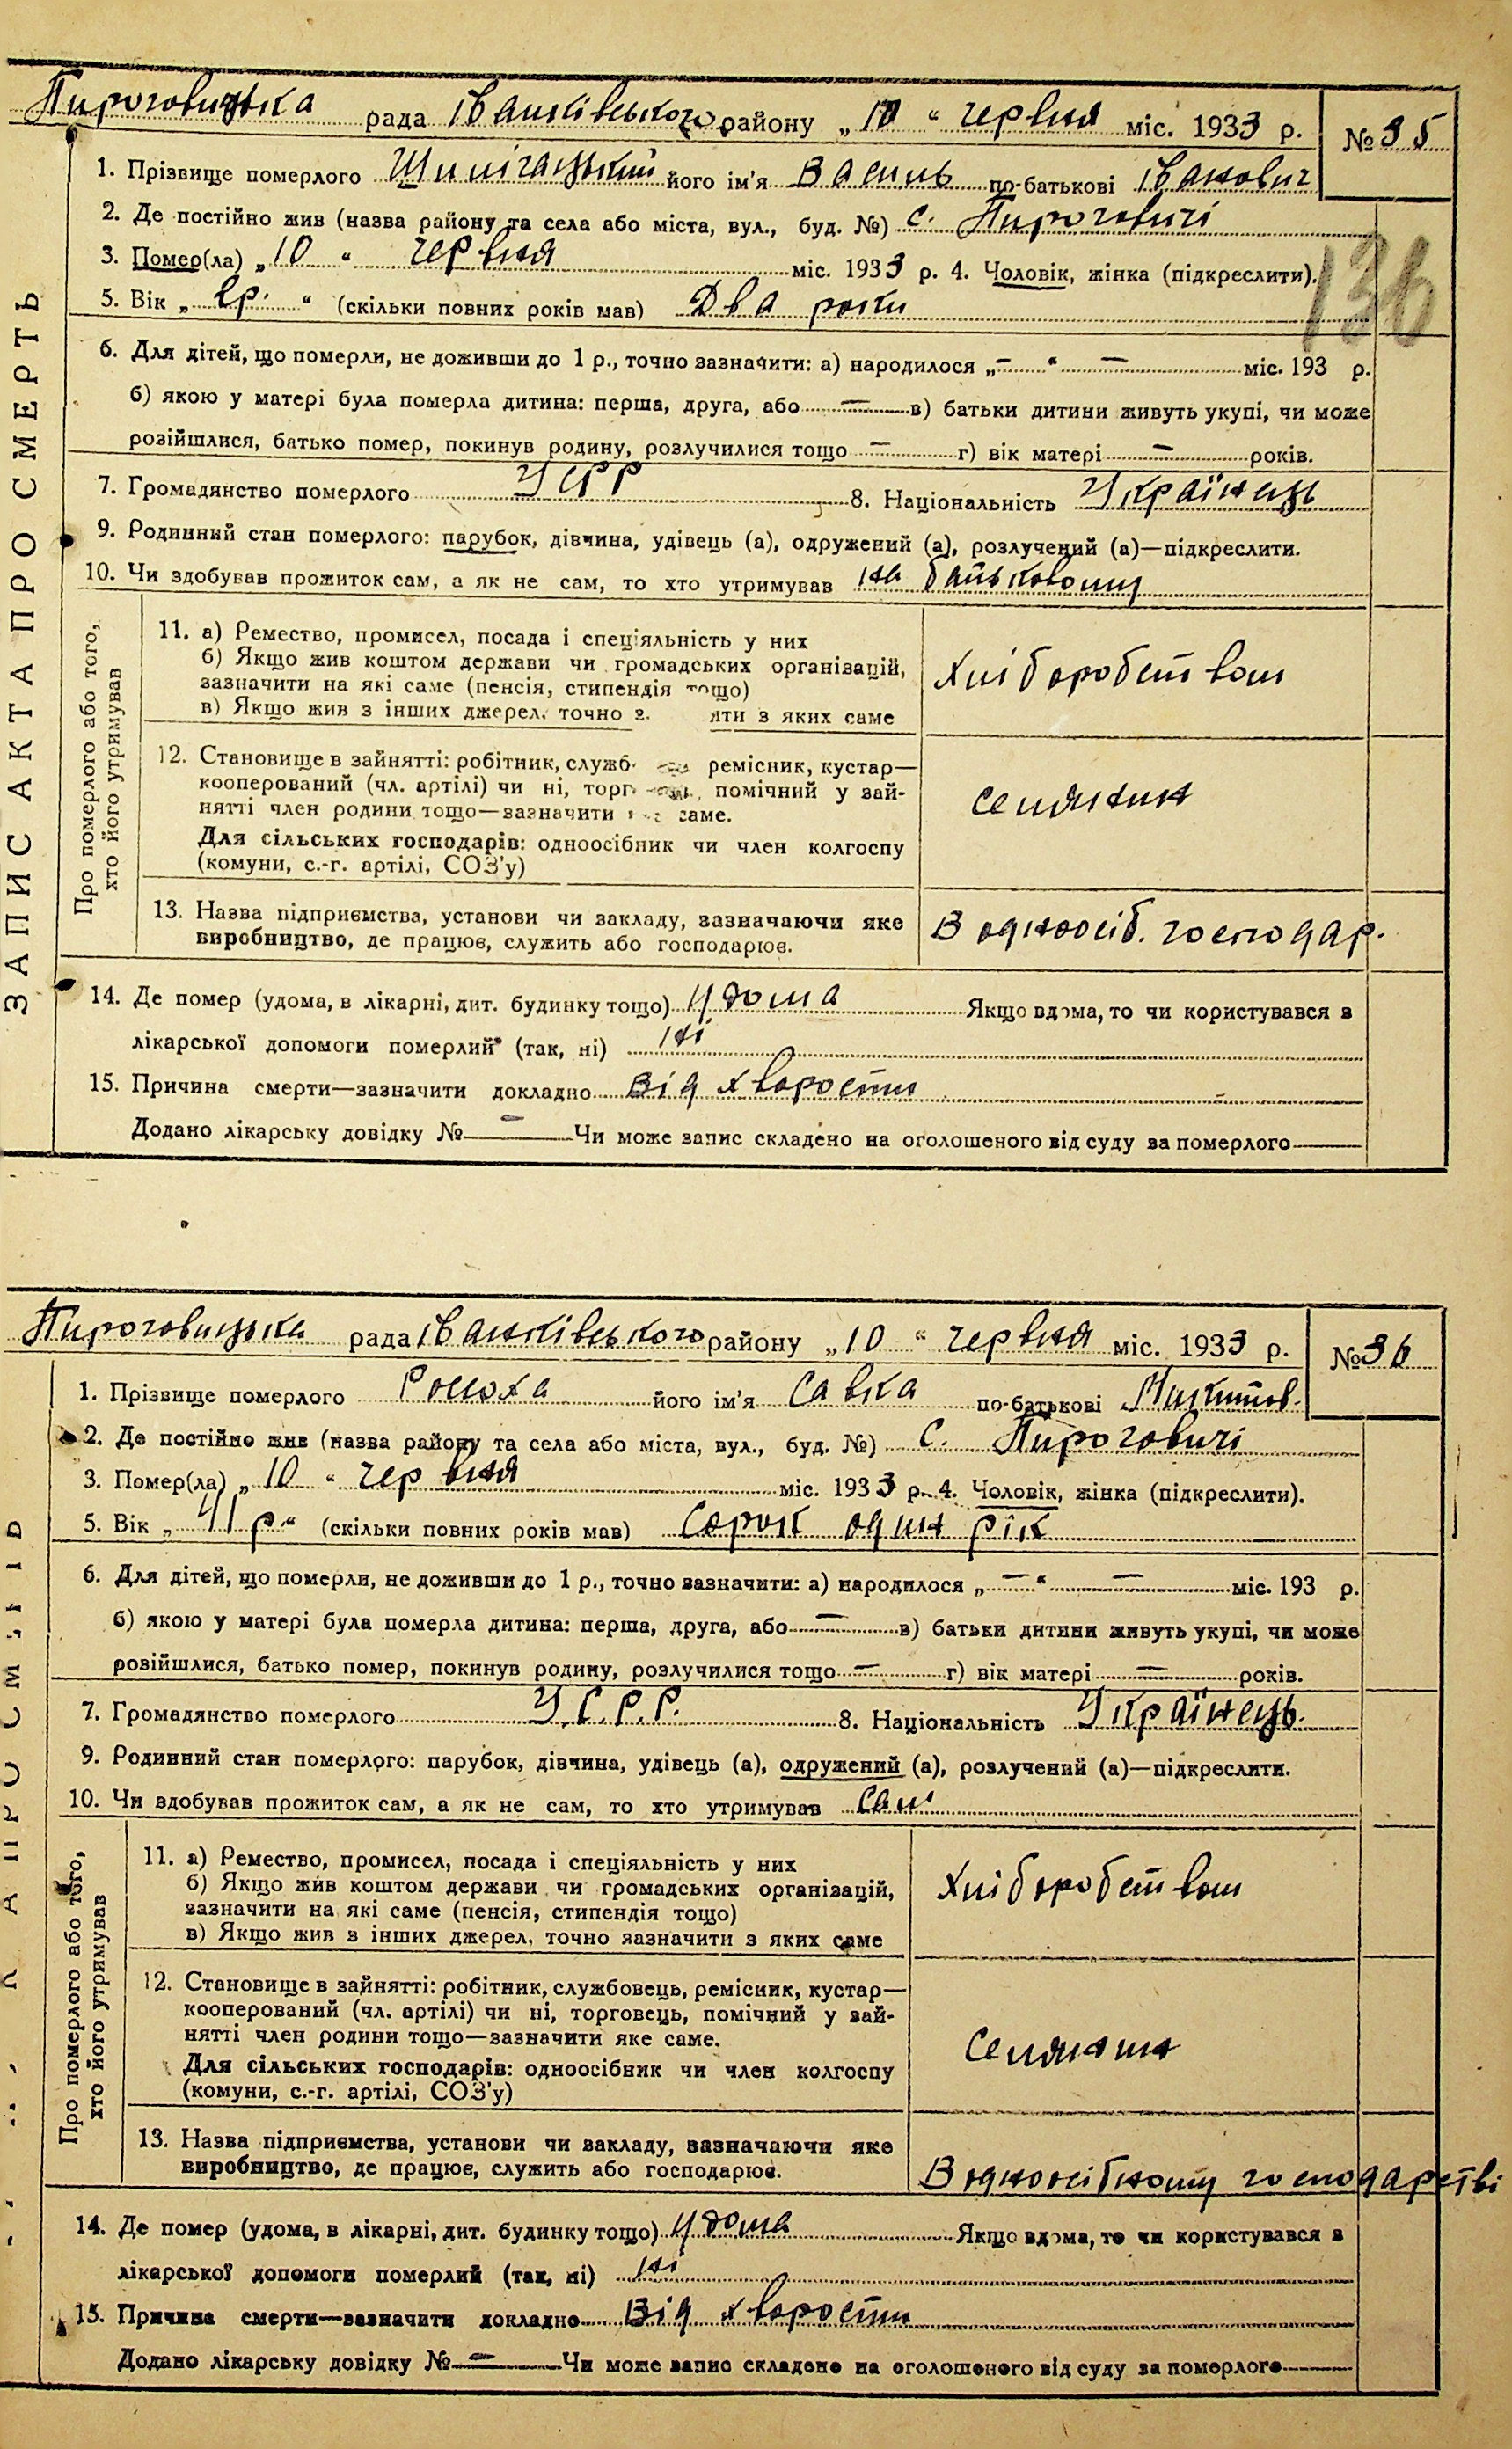 Пироговицька рада Іванківського району „10“ червня міс. 1933 р. № 35
1. Прізвище померлого його ім'я Василь по-батькові Іванович
2. Де постійно жив (назва району та села або міста, вул., буд. №) с. Пироговичі
3. Помер(ла) „10“ червня міс. 1933 р. 4. Чоловік, жінка (підкреслити).
136
5. Вік „2р.“ (скільки повних років мав) Два роки
6. Для дітей, що померли, не доживши до 1 р., точно зазначити: а) народилося „—“ — міс. 193 р.
б) якою у матері була померла дитина: перша, друга, або — в) батьки дитини живуть укупі, чи може
розійшлися, батько помер, покинув родину, розлучилися тощо — г) вік матері — років.
7. Громадянство померлого УСРР 8. Національність Українець
9. Родинний стан померлого: парубок, дівчина, удівець (а), одружений (а), розлучений (а)—підкреслити.
10. Чи здобував прожиток сам, а як не сам, то хто утримував на батьковому
ЗАПИС АКТА ПРО СМЕРТЬ
Про померлого або того,
хто його утримував
11. а) Ремество, промисел, посада і спеціяльність у них
б) Якщо жив коштом держави чи громадських організацій,
зазначити на які саме (пенсія, стипендія тощо)
в) Якщо жив з інших джерел, точно з яти з яких саме
Хліборобством
12. Становище в зайнятті: робітник, служб ремісник, кустар—
кооперований (чл. артілі) чи ні, торг помічний у зай-
нятті член родини тощо—зазначити саме.
Для сільських господарів: одноосібник чи член колгоспу
(комуни, с.-г. артілі, СОЗ'у)
селянин
13. Назва підприємства, установи чи закладу, зазначаючи яке
виробництво, де працює, служить або господарює.
В одноосіб. господар.
14. Де помер (удома, в лікарні, дит. будинку тощо) удома Якщо вдома, то чи користувався з
лікарської допомоги померлий (так, ні) ні
15. Причина смерти—зазначити докладно від хворости
Додано лікарську довідку № — Чи може запис складено на оголошеного від суду за померлого
Пироговицька рада Іванківського району „10“ червня міс. 1933 р. № 36
1. Прізвище померлого його ім'я Савка по-батькові Микитов.
2. Де постійно жив (назва району та села або міста, вул., буд. №) с. Пироговичі
3. Помер(ла) „10“ червня міс. 1933 р. 4. Чоловік, жінка (підкреслити).
5. Вік „41р.“ (скільки повних років мав) Сорок один рік
6. Для дітей, що померли, не доживши до 1 р., точно зазначити: а) народилося „—“ — міс. 193 р.
б) якою у матері була померла дитина: перша, друга, або — в) батьки дитини живуть укупі, чи може
розійшлися, батько помер, покинув родину, розлучилися тощо — г) вік матері — років.
7. Громадянство померлого У.С.Р.Р. 8. Національність Українець.
9. Родинний стан померлого: парубок, дівчина, удівець (а), одружений (а), розлучений (а)—підкреслити.
10. Чи здобував прожиток сам, а як не сам, то хто утримував сам
Про померлого або того,
хто його утримував
11. а) Ремество, промисел, посада і спеціяльність у них
б) Якщо жив коштом держави чи громадських організацій,
зазначити на які саме (пенсія, стипендія тощо)
в) Якщо жив з інших джерел, точно зазначити з яких саме
Хліборобством
12. Становище в зайнятті: робітник, службовець, ремісник, кустар—
кооперований (чл. артілі) чи ні, торговець, помічний у зай-
нятті член родини тощо—зазначити яке саме.
Для сільських господарів: одноосібник чи член колгоспу
(комуни, с.-г. артілі, СОЗ'у)
Селянин
13. Назва підприємства, установи чи закладу, зазначаючи яке
виробництво, де працює, служить або господарює.
В одноосібному господарстві
14. Де помер (удома, в лікарні, дит. будинку тощо) удома Якщо вдома, то чи користувався з
лікарської допомоги померлий (так, ні) ні
15. Причина смерти—зазначити докладно Від хворости
Додано лікарську довідку № — Чи може запис складено на оголошеного від суду за померлого